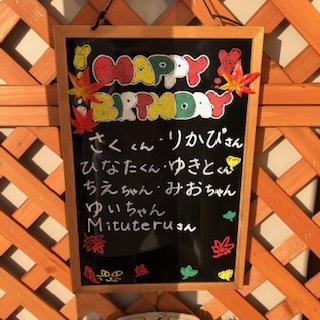 HAPPY
BIRTHDAY
さくくん・りかぴさん
ひなたくん・ゆきとくん
ちえちゃん・みおちゃん
ゆいちゃん
Mituteruさん